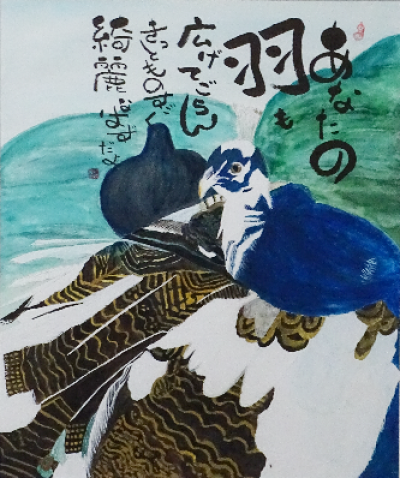 あなたの
羽も
広げてごらん
きっとものすごく
綺麗なはずだよ